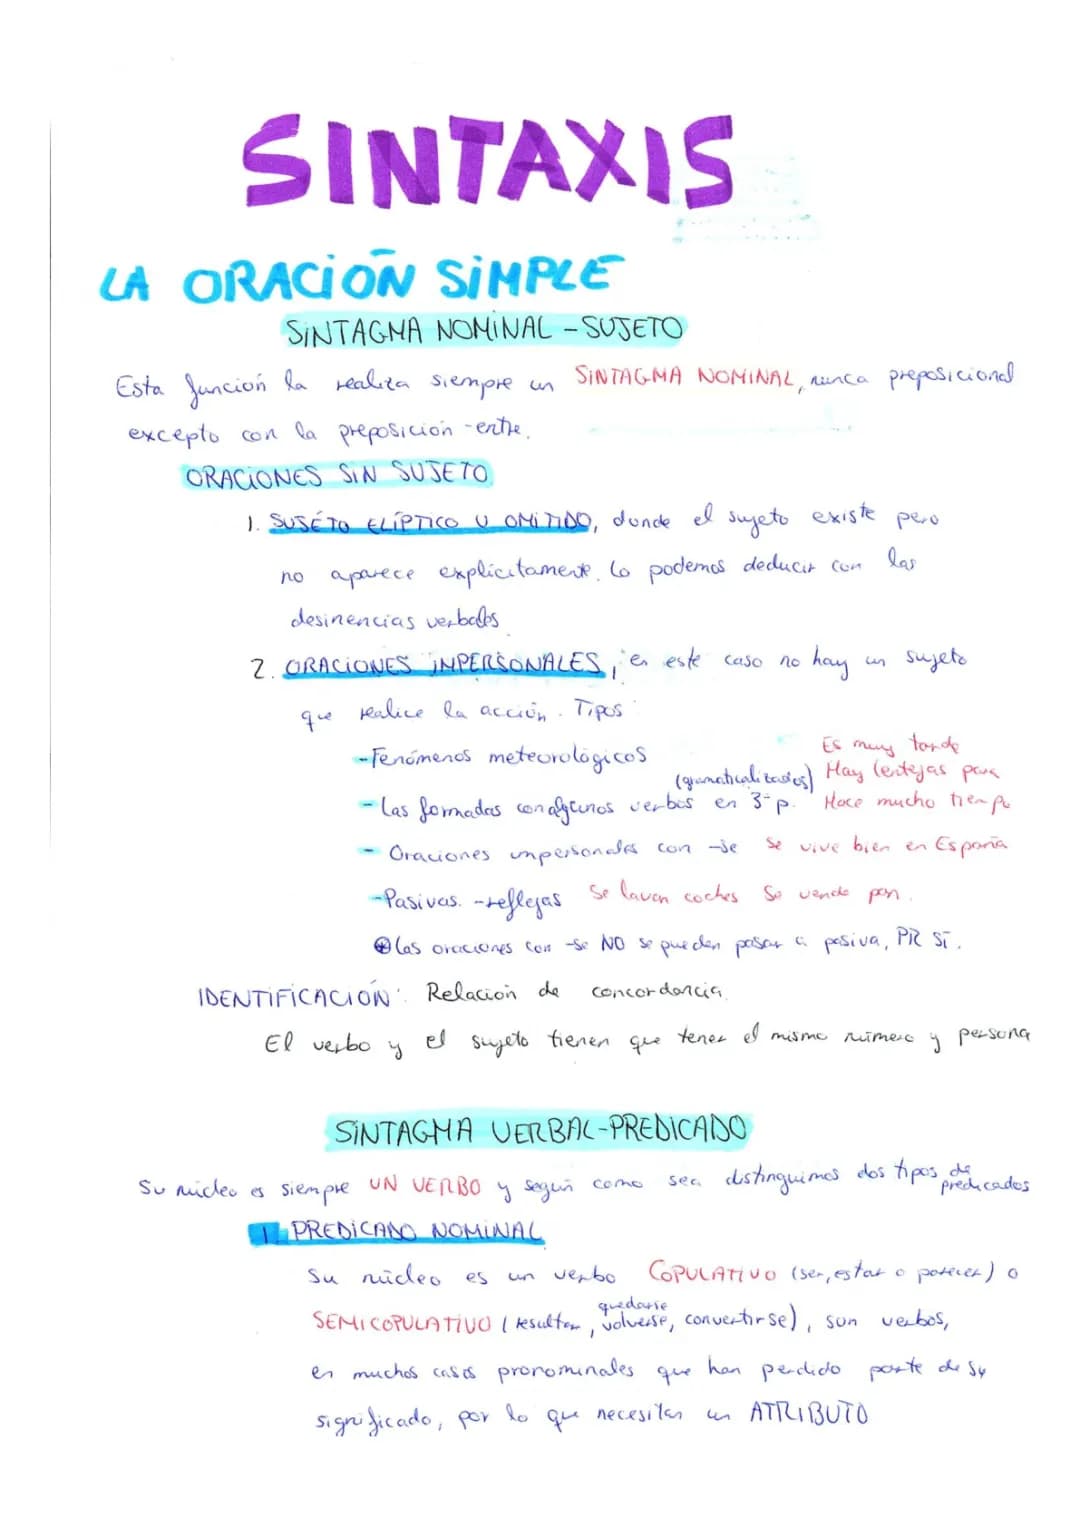 SINTAXIS
LA ORACIÓN SIMPLE
SINTAGMA NOMINAL - SUJETO
Esta función la realiza siempre un SINTAGMA NOMINAL, nunca preposicional
excepto con la preposición -entre.
ORACIONES SIN SUJETO
1. SUJETO ELÍPTICO U OMITIDO, donde el sujeto existe pero
no aparece explícitamente. Lo podemos deducir con las
desinencias verbales
2. ORACIONES IMPERSONALES, en este caso no hay un sujeto
que realice la acción. Tipos:
- Fenómenos meteorológicos
Es muy tarde
(gramaticalizados) Hay lentejas para
- Las formadas con algunos verbos en 3ª p. Hace mucho tiempo
- Oraciones impersonales con -se Se vive bien en España
- Pasivas. -reflejas Se lavan coches Se vende pan.
⊛ Las oraciones con -se NO se pueden pasar a pasiva, PR SÍ.
IDENTIFICACIÓN: Relación de concordancia.
El verbo y el sujeto tienen que tener el mismo número y persona
SINTAGMA VERBAL-PREDICADO
Su núcleo es siempre UN VERBO y según como sea distinguimos dos tipos de
predicados
1. PREDICADO NOMINAL
Su núcleo es un verbo COPULATIVO (ser, estar o parecer) o
quedarse
SEMICOPULATIVO (resultar, volverse, convertirse), son verbos,
en muchos casos pronominales que han perdido parte de su
significado, por lo que necesitan un ATRIBUTO